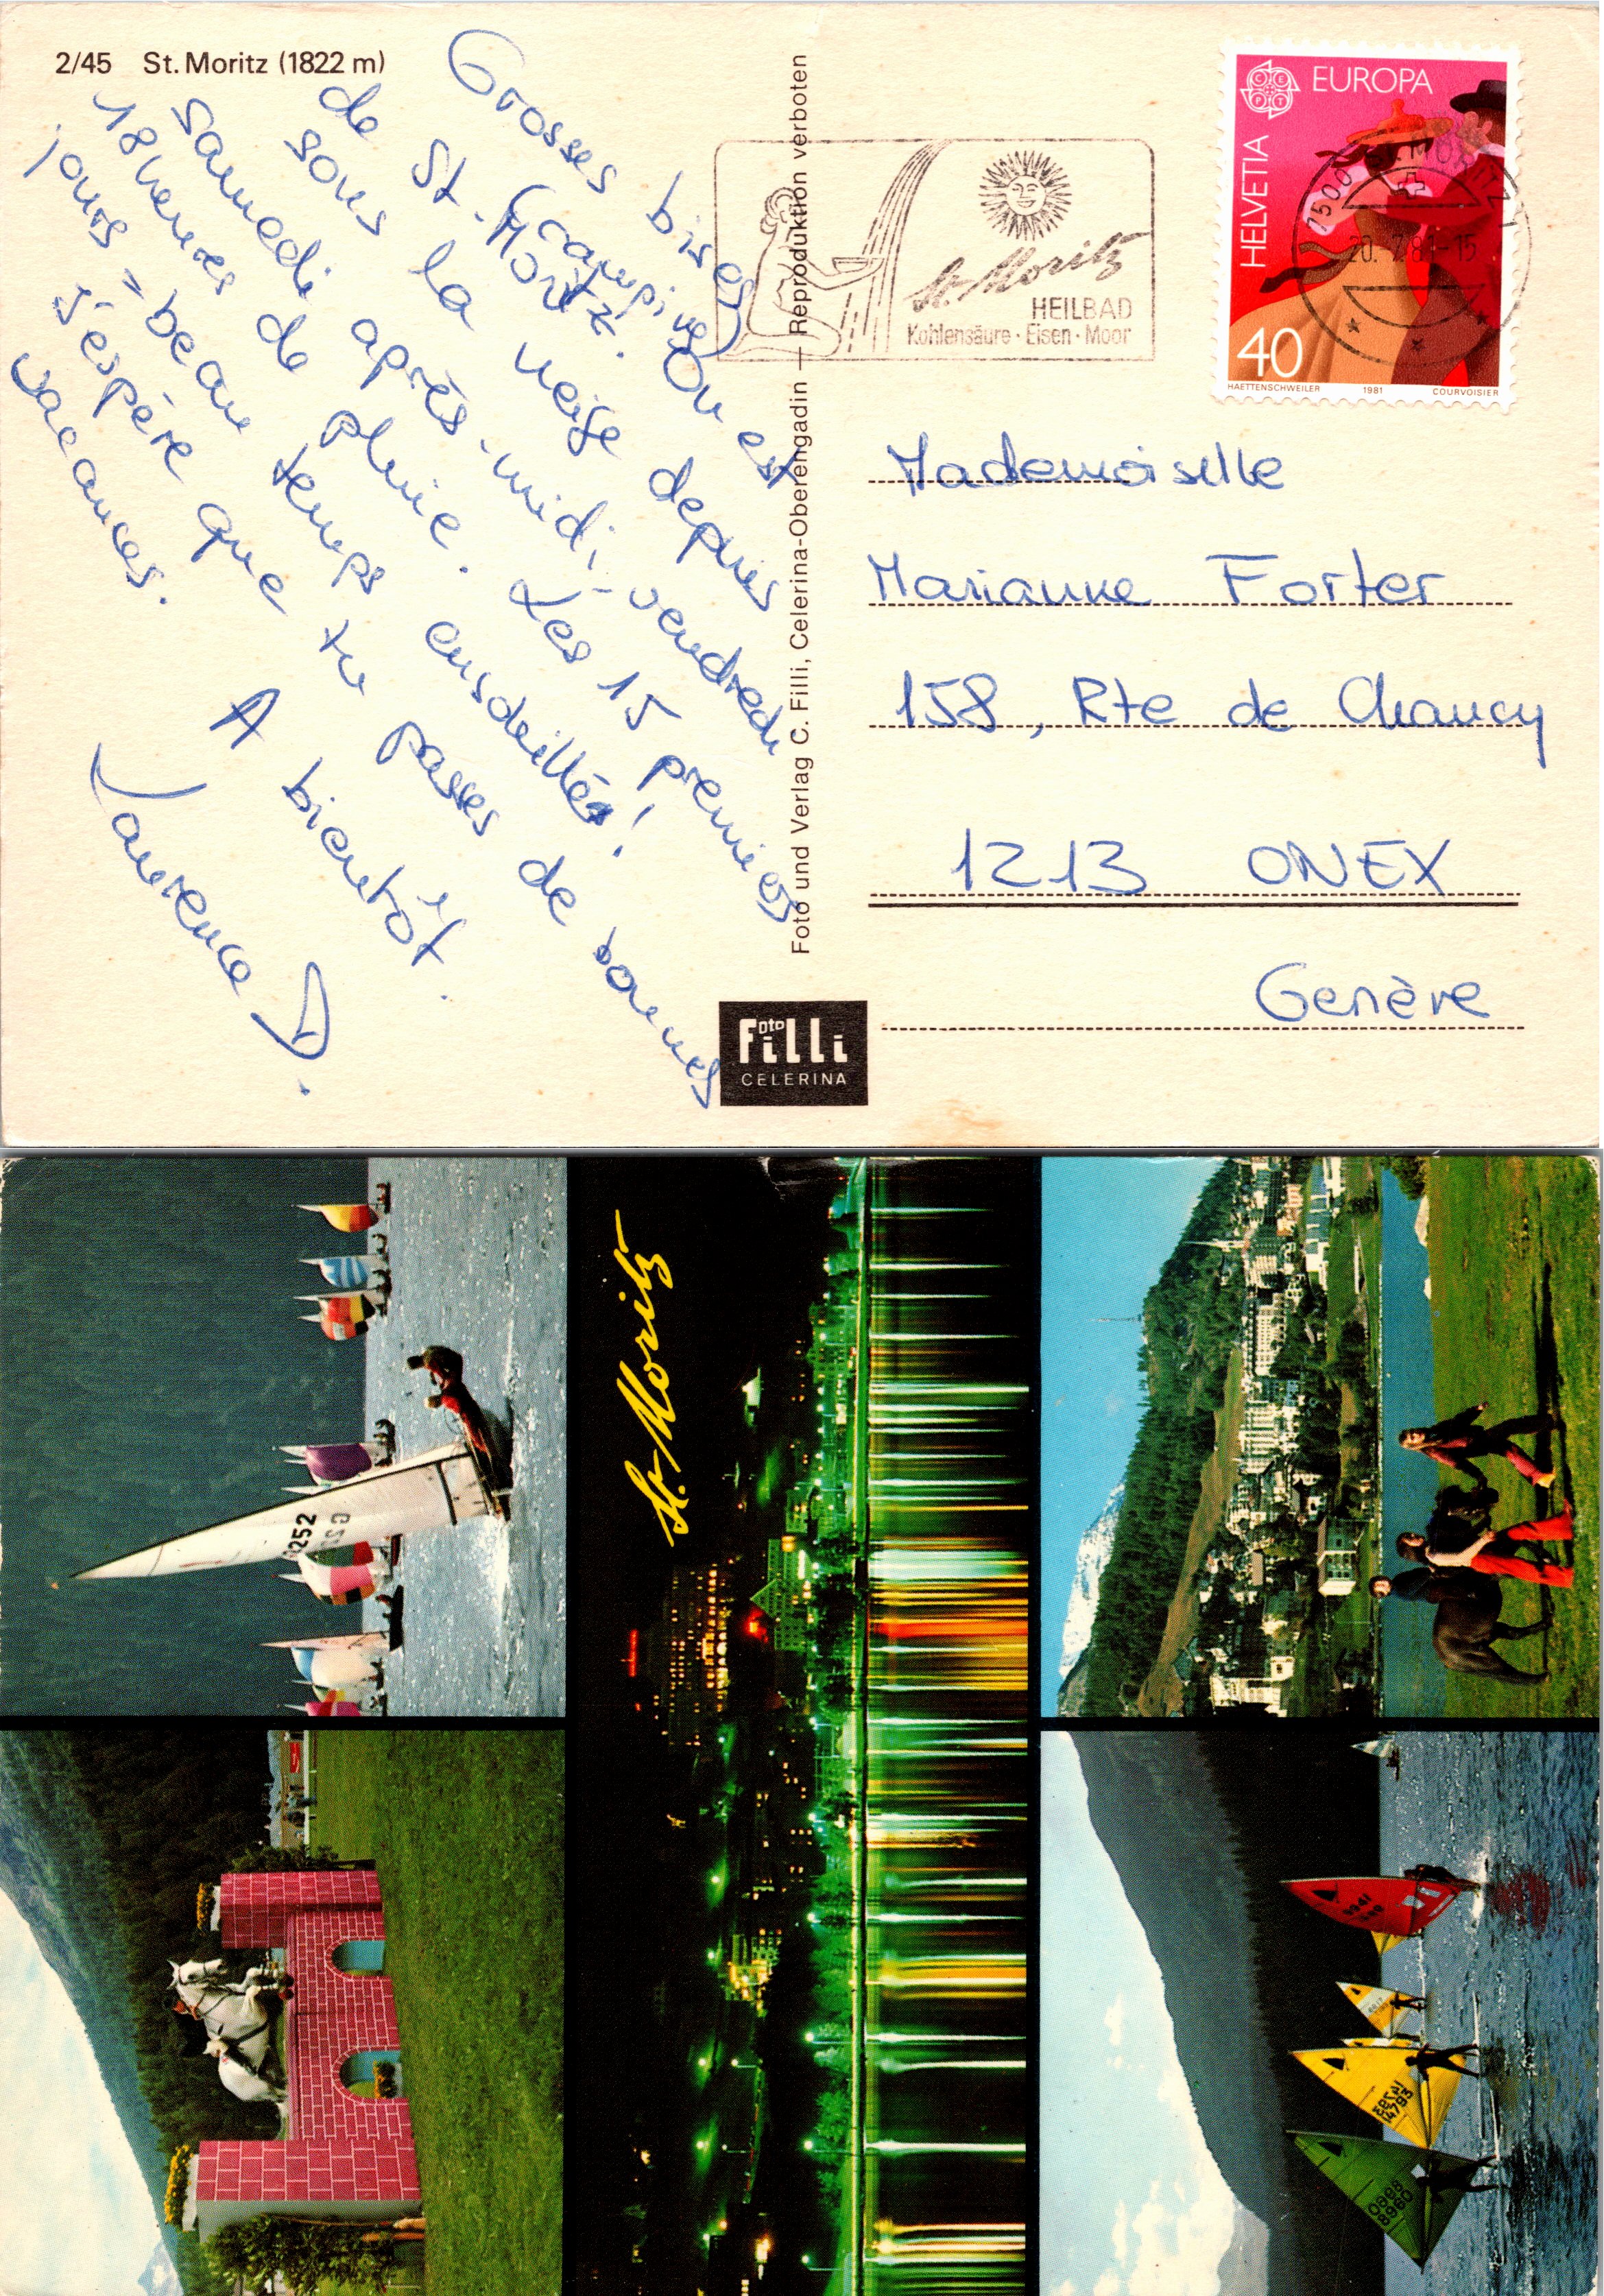 2/45 St. Moritz (1822 m)
Grosses bises
de St-Moritz.
(camping)
On est
sous la neige depuis
samedi après-midi, vendredi
18 heures de pluie. Les 15 premiers
jours = beau temps ensoleillé!
j'espère que tu passes de bonnes
vacances.
A bientôt.
Laurence D.
Foto und Verlag C. Filli, Celerina-Oberengadin — Reproduktion verboten
Foto
Filli
CELERINA
St. Moritz
HEILBAD
Kohlensäure · Eisen · Moor
CEPT
EUROPA
HELVETIA
40
HAETTENSCHWEILER 1981 COURVOISIER
7500 ST. MORITZ 1
20. 7. 81-15
Mademoiselle
Marianne Forter
158, Rte de Chancy
1213 ONEX
Genève
St. Moritz